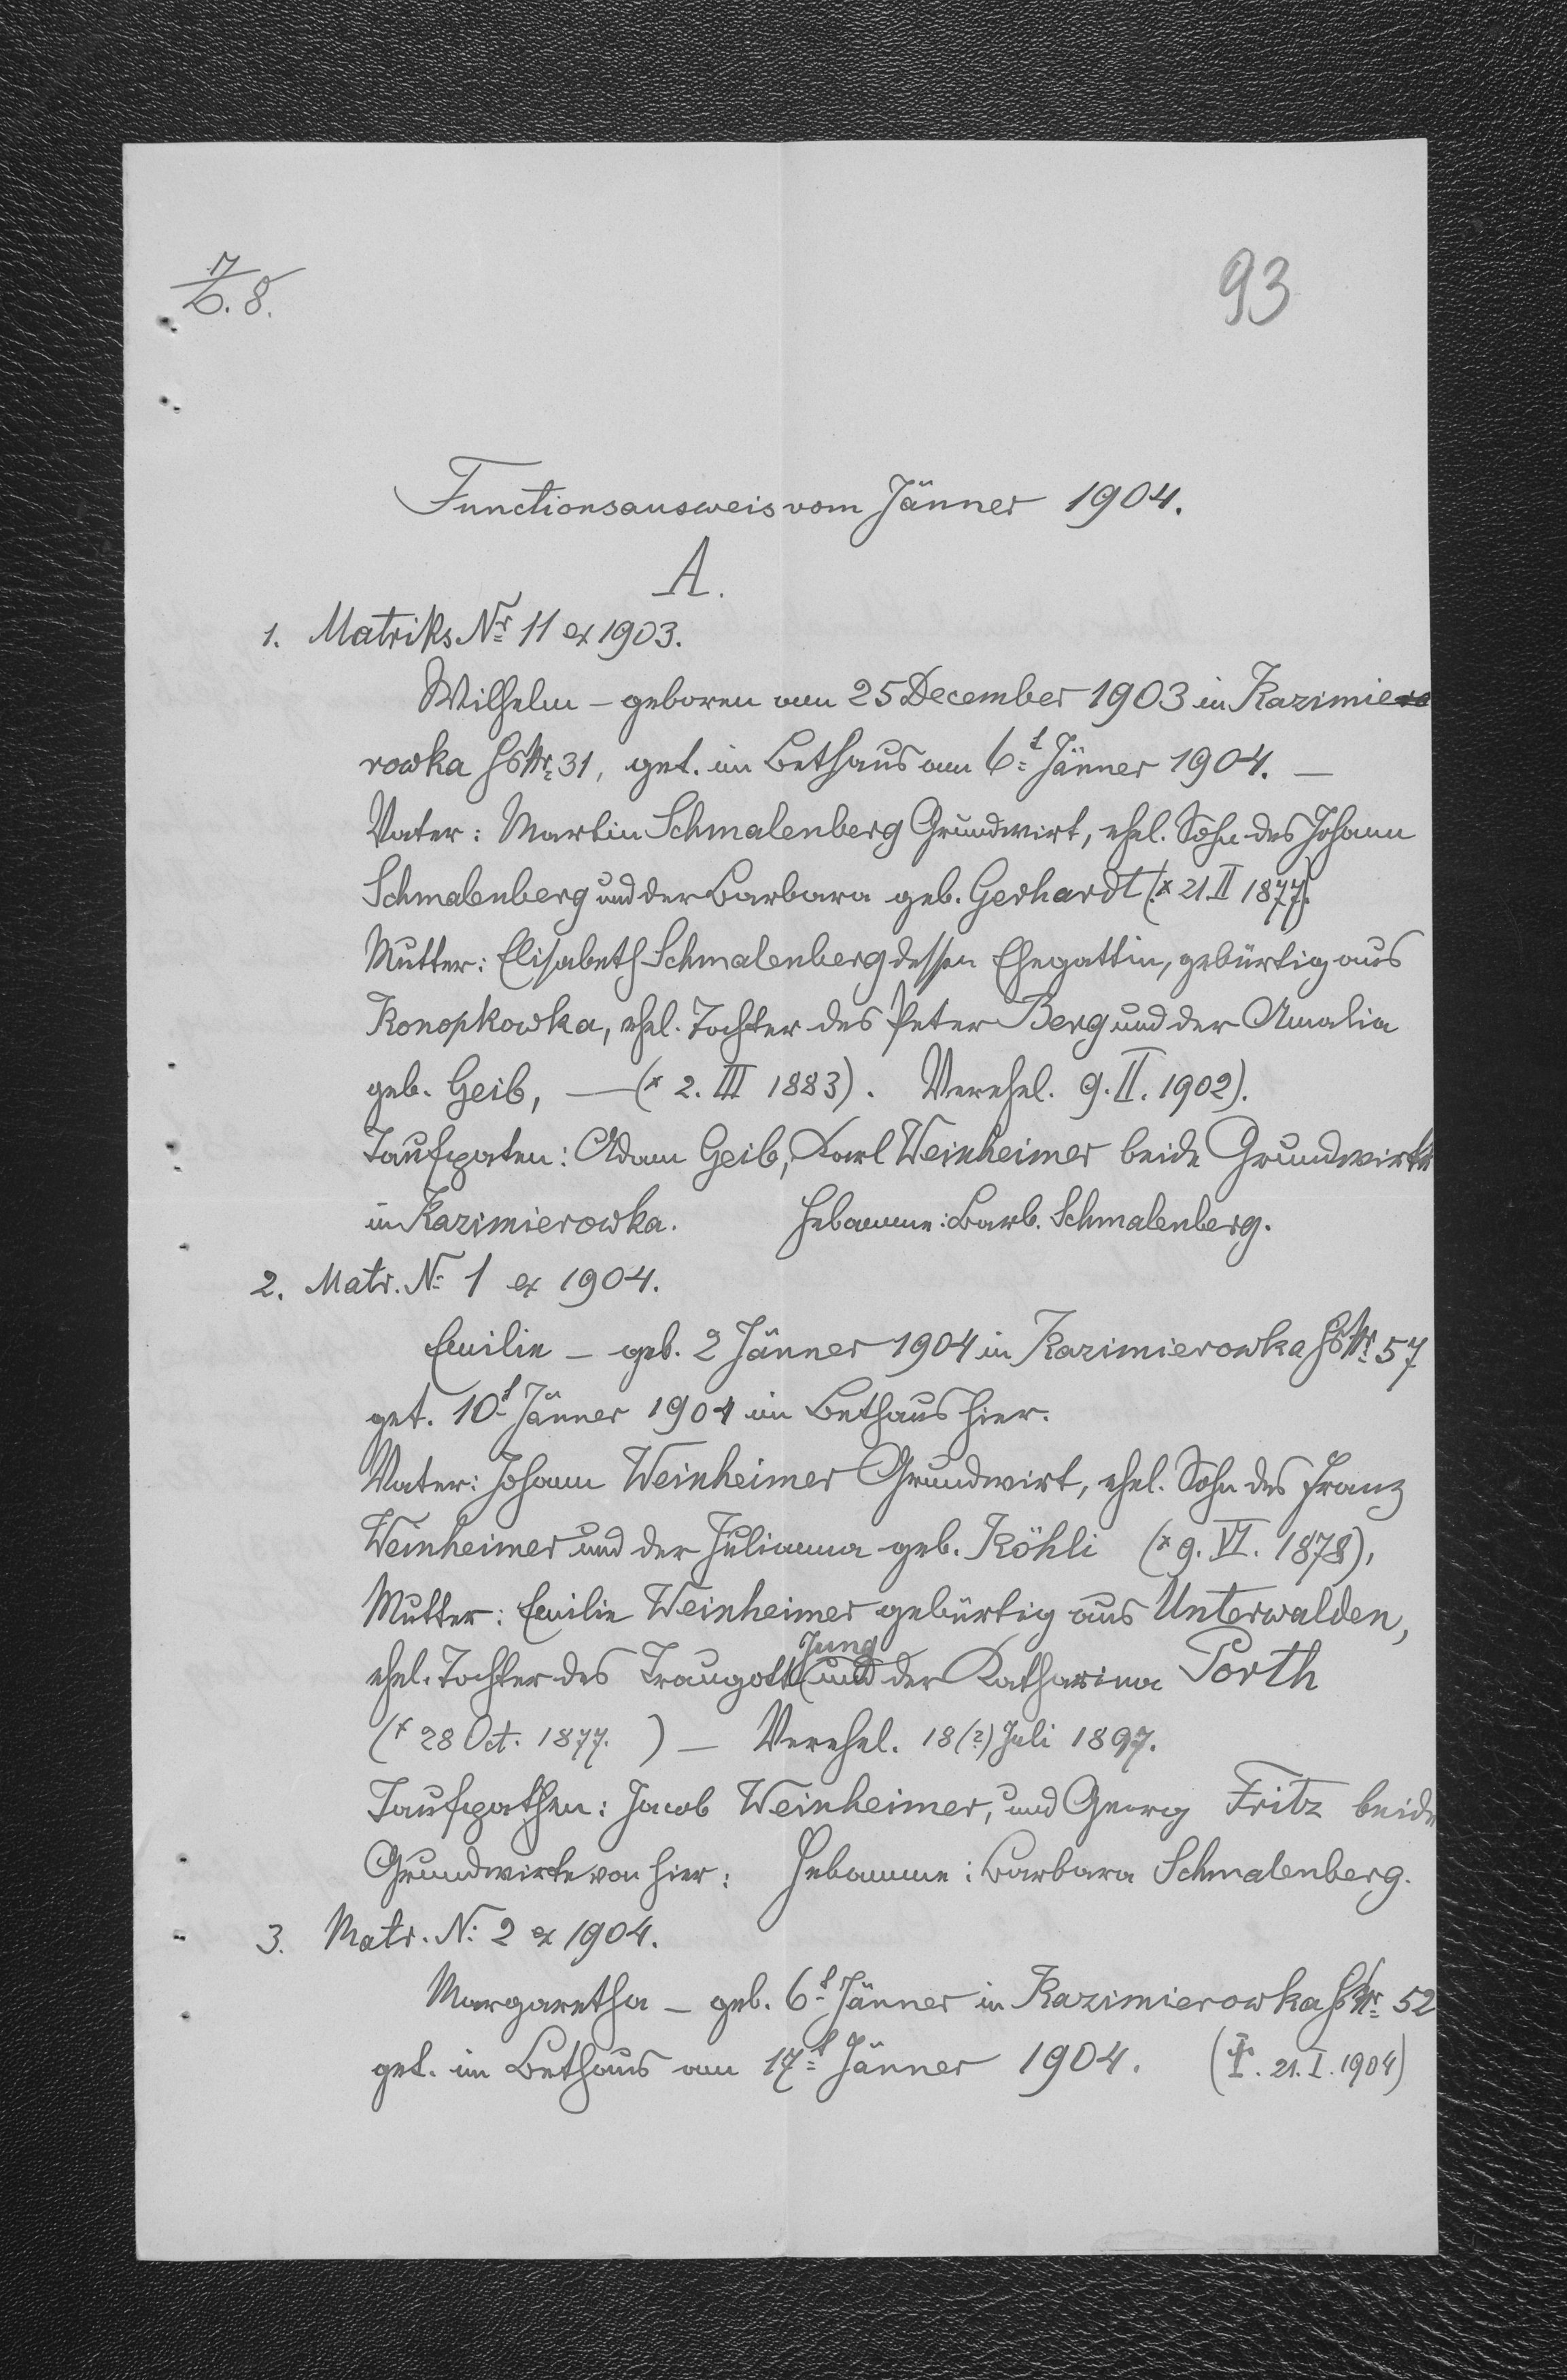 7/6. 8.
93
Functionsausweis vom Jänner 1904.
A.
1. Matriks Nr 11 ex 1903.
Wilhelm – geboren am 25 December 1903 in Kazimie
rowka HsNr. 31, get. im Bethaus am 6t Jänner 1904. –
Vater: Martin Schmalenberg Grundwirt, ehel. Sohn des Johann
Schmalenberg und der Barbara geb. Gerhardt (* 21. II 1877).
Mutter: Elisabeth Schmalenberg dessen Ehegattin, gebürtig aus
Konopkowka, ehel. Tochter des Peter Berg und der Amalia
geb. Geib, – (* 2. III 1883). Verehel. 9. II. 1902).
Taufpaten: Adam Geib, Karl Weinheimer beide Grundwirte
in Kazimierowka. Hebamme: Barb. Schmalenberg.
2. Matr. N: 1 ex 1904.
Emilie – geb. 2 Jänner 1904 in Kazimierowka HsNr. 57
get. 10t Jänner 1904 im Bethaus hier.
Vater: Johann Weinheimer Grundwirt, ehel. Sohn des Franz
Weinheimer und der Julianna geb. Köhli (* 9. VI. 1878),
Mutter: Emilie Weinheimer gebürtig aus Unterwalden,
ehel. Tochter des Traugott Jung und der Katharina Porth
(* 28 Oct. 1877. ) – Verehel. 18 (?) Juli 1897.
Taufpathen: Jacob Weinheimer, und Georg Fritz beide
Grundwirte von hier: Hebamme: Barbara Schmalenberg.
3. Matr. N: 2 ex 1904.
Margaretha – geb. 6t Jänner in Kazimierowka HsNr. 52
get. im Bethaus am 17t Jänner 1904. (†. 21. I. 1904)